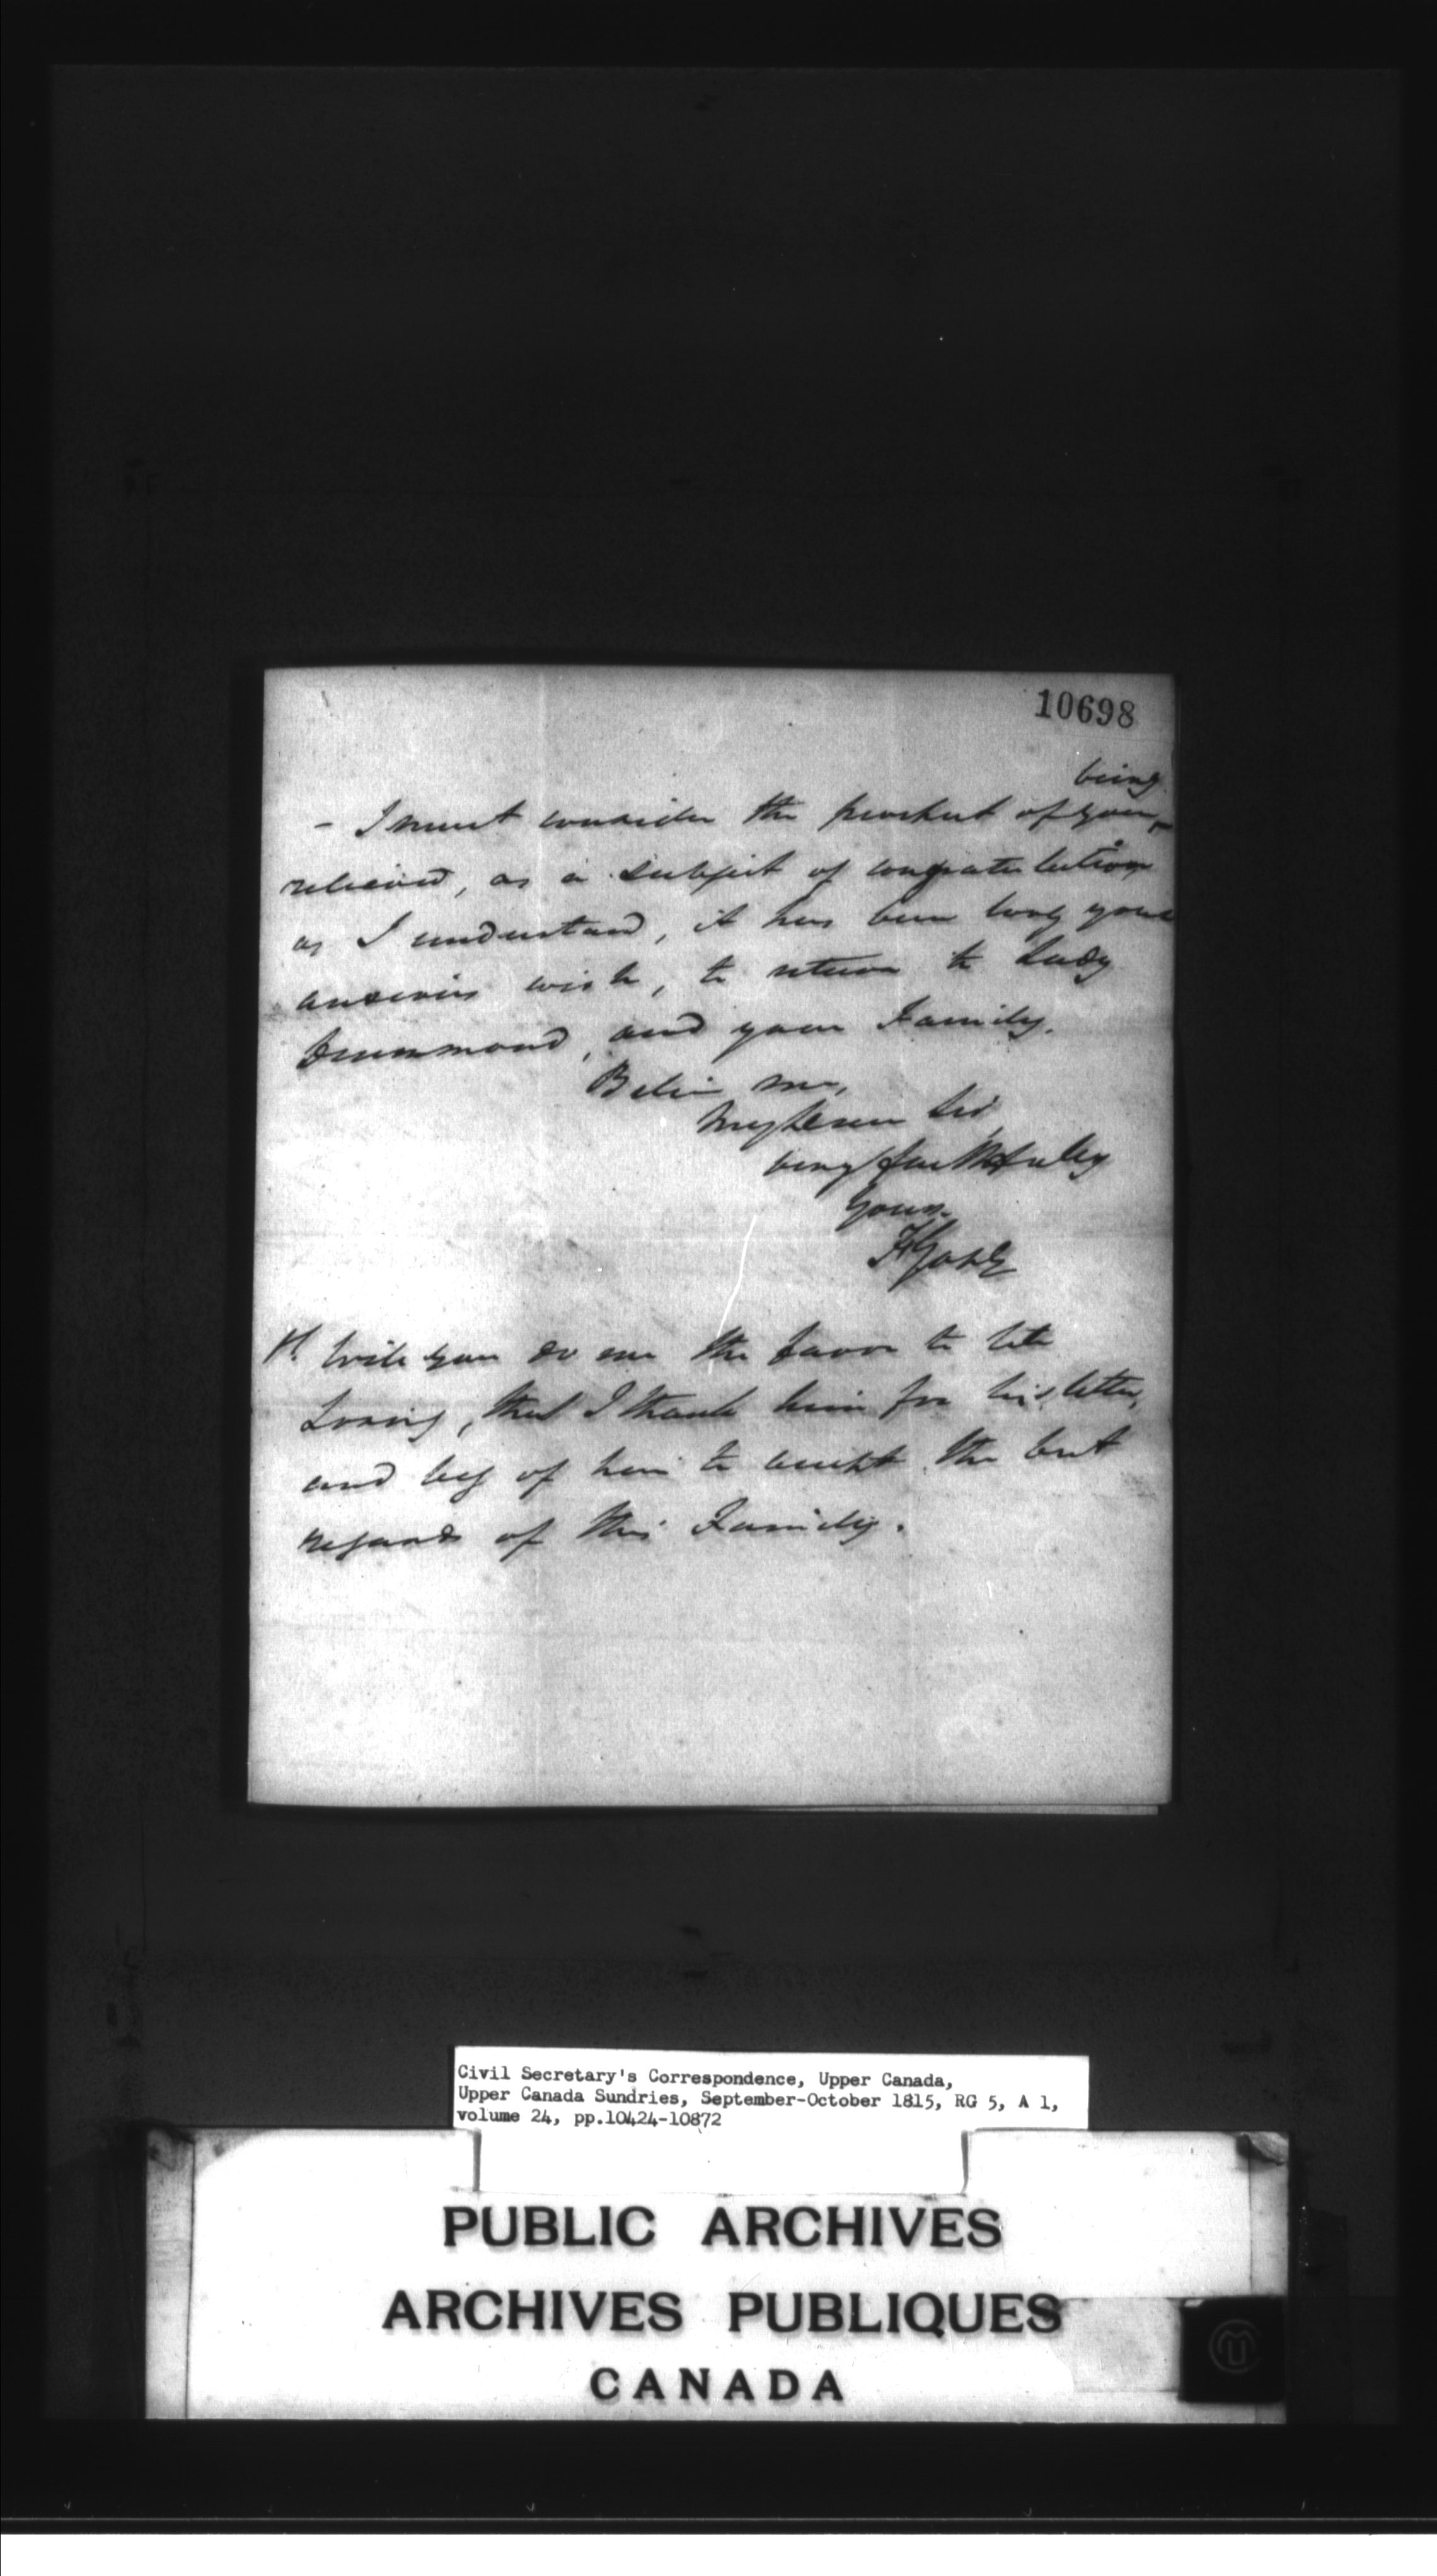 10698
being
- I must consider the prospect of your
relieved, as a subject of congratulation
as I understand, it has been long your
anxious wish, to return to Lady
Drummond, and your Family.
Believe me,
My dear Sir,
very faithfully
yours.
F Gore
Will you do me the favor to tell
Loring, that I thank him for his letter,
and beg of him to accept the best
regards of this Family.
Civil Secretary's Correspondence, Upper Canada,
Upper Canada Sundries, September-October 1815, RG 5, A 1,
volume 24, pp.10424-10872
PUBLIC ARCHIVES
ARCHIVES PUBLIQUES
CANADA